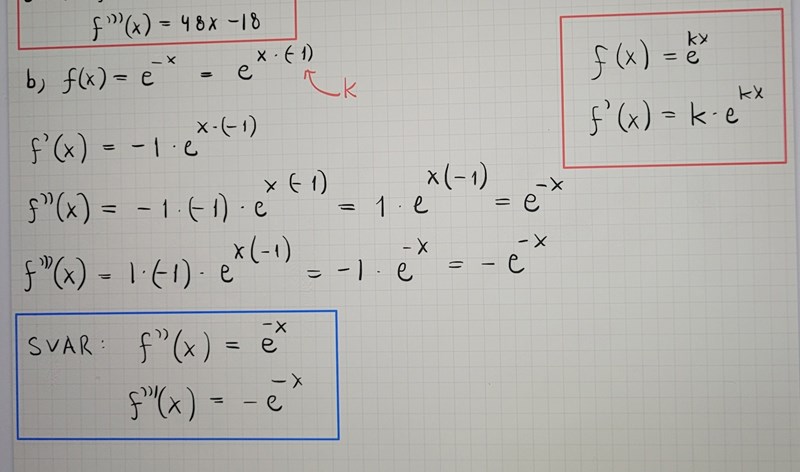 f'''(x) = 48x - 18
b) f(x) = e^{-x} = e^{x·(-1)}
k
f(x) = e^{kx}
f'(x) = k·e^{kx}
f'(x) = -1·e^{x·(-1)}
f''(x) = -1·(-1)·e^{x(-1)} = 1·e^{x(-1)} = e^{-x}
f'''(x) = 1·(-1)·e^{x(-1)} = -1·e^{-x} = -e^{-x}
SVAR: f''(x) = e^{-x}
f'''(x) = -e^{-x}